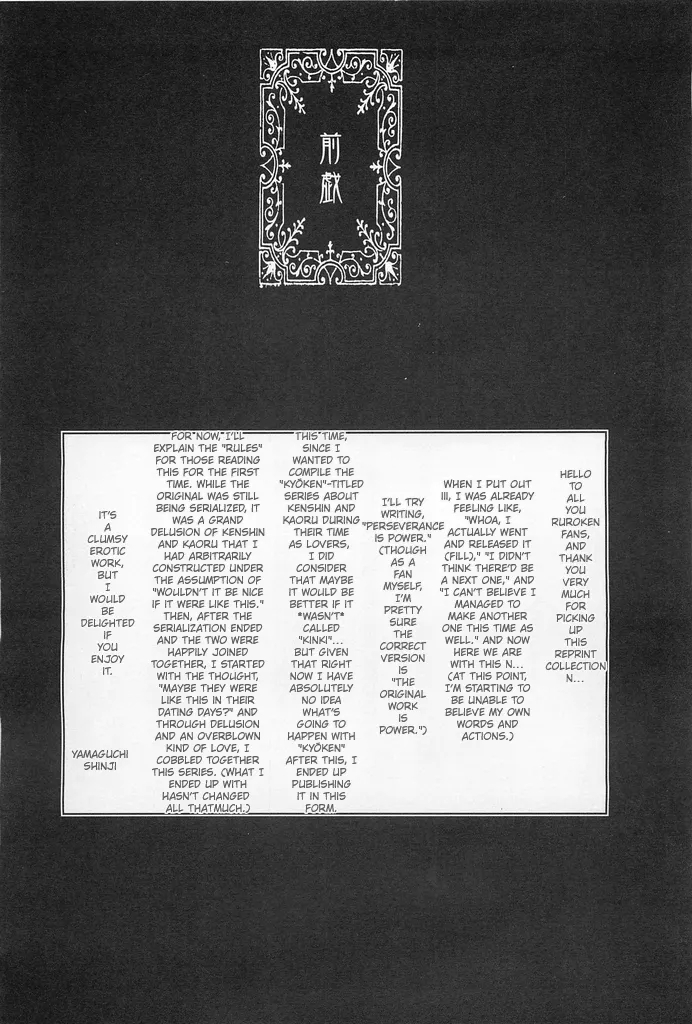 前戯
HELLO
TO
ALL
YOU
RUROKEN
FANS,
AND
THANK
YOU
VERY
MUCH
FOR
PICKING
UP
THIS
REPRINT
COLLECTION
N...
WHEN I PUT OUT
III, I WAS ALREADY
FEELING LIKE,
"WHOA, I
ACTUALLY WENT
AND RELEASED IT
(FILL)," "I DIDN'T
THINK THERE'D BE
A NEXT ONE," AND
"I CAN'T BELIEVE I
MANAGED TO
MAKE ANOTHER
ONE THIS TIME AS
WELL." AND NOW
HERE WE ARE
WITH THIS N...
(AT THIS POINT,
I'M STARTING TO
BE UNABLE TO
BELIEVE MY OWN
WORDS AND
ACTIONS.)
I'LL TRY
WRITING,
"PERSEVERANCE
IS POWER."
(THOUGH
AS A
FAN
MYSELF,
I'M
PRETTY
SURE
THE
CORRECT
VERSION
IS
"THE
ORIGINAL
WORK
IS
POWER.")
THIS TIME,
SINCE I
WANTED TO
COMPILE THE
"KYŌKEN"-TITLED
SERIES ABOUT
KENSHIN AND
KAORU DURING
THEIR TIME
AS LOVERS,
I DID
CONSIDER
THAT MAYBE
IT WOULD BE
BETTER IF IT
*WASN'T*
CALLED
"KINKI"...
BUT GIVEN
THAT RIGHT
NOW I HAVE
ABSOLUTELY
NO IDEA
WHAT'S
GOING TO
HAPPEN WITH
"KYŌKEN"
AFTER THIS, I
ENDED UP
PUBLISHING
IT IN THIS
FORM.
FOR NOW, I'LL
EXPLAIN THE "RULES"
FOR THOSE READING
THIS FOR THE FIRST
TIME. WHILE THE
ORIGINAL WAS STILL
BEING SERIALIZED, IT
WAS A GRAND
DELUSION OF KENSHIN
AND KAORU THAT I
HAD ARBITRARILY
CONSTRUCTED UNDER
THE ASSUMPTION OF
"WOULDN'T IT BE NICE
IF IT WERE LIKE THIS."
THEN, AFTER THE
SERIALIZATION ENDED
AND THE TWO WERE
HAPPILY JOINED
TOGETHER, I STARTED
WITH THE THOUGHT,
"MAYBE THEY WERE
LIKE THIS IN THEIR
DATING DAYS?" AND
THROUGH DELUSION
AND AN OVERBLOWN
KIND OF LOVE, I
COBBLED TOGETHER
THIS SERIES. (WHAT I
ENDED UP WITH
HASN'T CHANGED
ALL THATMUCH.)
IT'S
A
CLUMSY
EROTIC
WORK,
BUT
I
WOULD
BE
DELIGHTED
IF
YOU
ENJOY
IT.
YAMAGUCHI
SHINJI